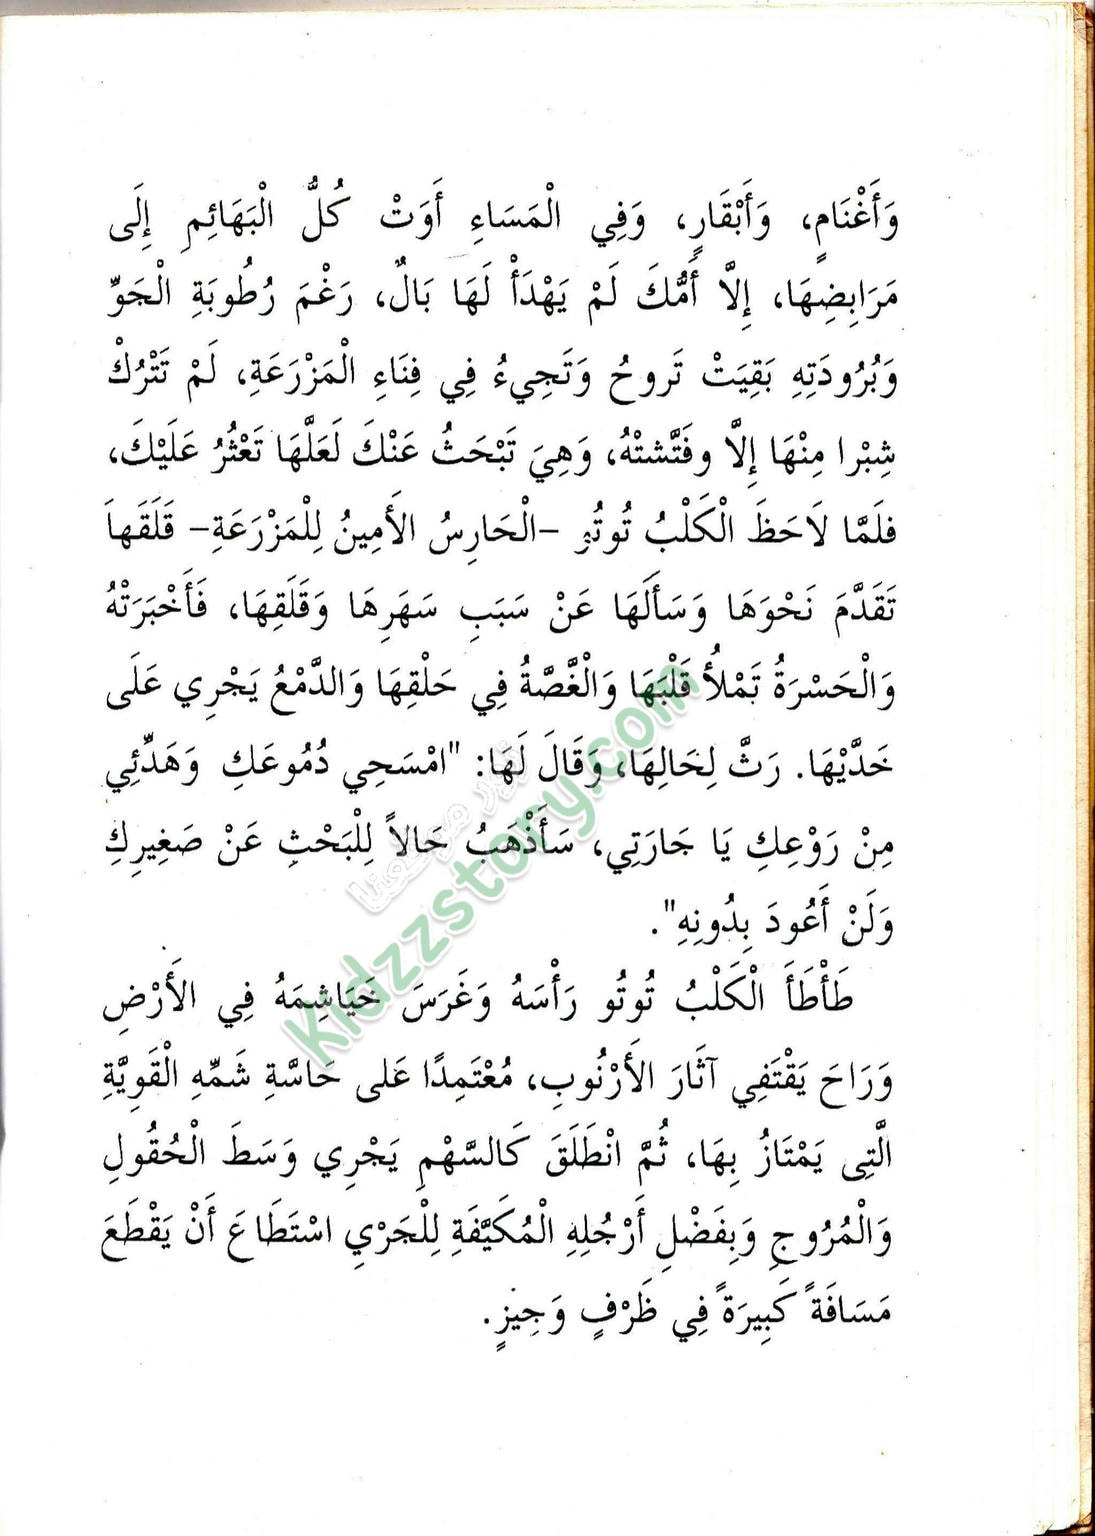 وَأَغْنَامٍ، وَأَبْقَارٍ، وَفِي الْمَسَاءِ أَوَتْ كُلُّ الْبَهَائِمِ إِلَى
مَرَابِضِهَا، إِلَّا أُمُّكَ لَمْ يَهْدَأْ لَهَا بَالٌ، رَغْمَ رُطُوبَةِ الْجَوِّ
وَبُرُودَتِهِ بَقِيَتْ تَروحُ وَتَجِيءُ فِي فِنَاءِ الْمَزْرَعَةِ، لَمْ تَتْرُكْ
شِبْرا مِنْهَا إِلَّا وفَتَّشتْهُ، وَهِيَ تَبْحَثُ عَنْكَ لَعَلَّهَا تَعْثُرُ عَلَيْكَ،
فلَمَّا لَاحَظَ الْكَلْبُ تُوتُو -الْحَارِسُ الأَمِينُ لِلْمَزْرَعَةِ- قَلَقَهاَ
تَقَدَّمَ نَحْوَهَا وَسَأَلَهَا عَنْ سَبَبِ سَهَرِهَا وَقَلَقِهَا، فَأَخْبَرَتْهُ
وَالْحَسْرَةُ تَمْلأُ قَلْبَهَا وَالْغَّصَّةُ فِي حَلْقِهَا وَالدَّمْعُ يَجْرِي عَلَى
خَدَّيْهَا. رَثَّ لِحَالِهَا، وَقَالَ لَهَا: "امْسَحِي دُمُوعَكِ وَهَدِّئِي
مِنْ رَوْعِكِ يَا جَارَتِي، سَأَذْهَبُ حَالاً لِلْبَحْثِ عَنْ صَغِيرِكِ
وَلَنْ أَعُودَ بِدُونِهِ".
طَأْطَأَ الْكَلْبُ تُوتُو رَأْسَهُ وَغَرَسَ خَيَاشِمَهُ فِي الأَرْضِ
وَرَاحَ يَقْتَفِي آثَارَ الأَرْنُوبِ، مُعْتَمِدًا عَلى حَاسَّةِ شَمِّهِ الْقَوِيَّةِ
الَّتِى يَمْتَازُ بِهَا، ثُمَّ انْطَلَقَ كَالسَّهْمِ يَجْرِي وَسَطَ الْحُقُولِ
وَالْمُرُوجِ وَبِفَضْلِ أَرْجُلِهِ الْمُكَيَّفَةِ لِلْجَرْيِ اسْتَطَاعَ أَنْ يَقْطَعَ
مَسَافَةً كَبِيرَةً فِي ظَرْفٍ وَجِيزٍ.
Kidzzstory.com